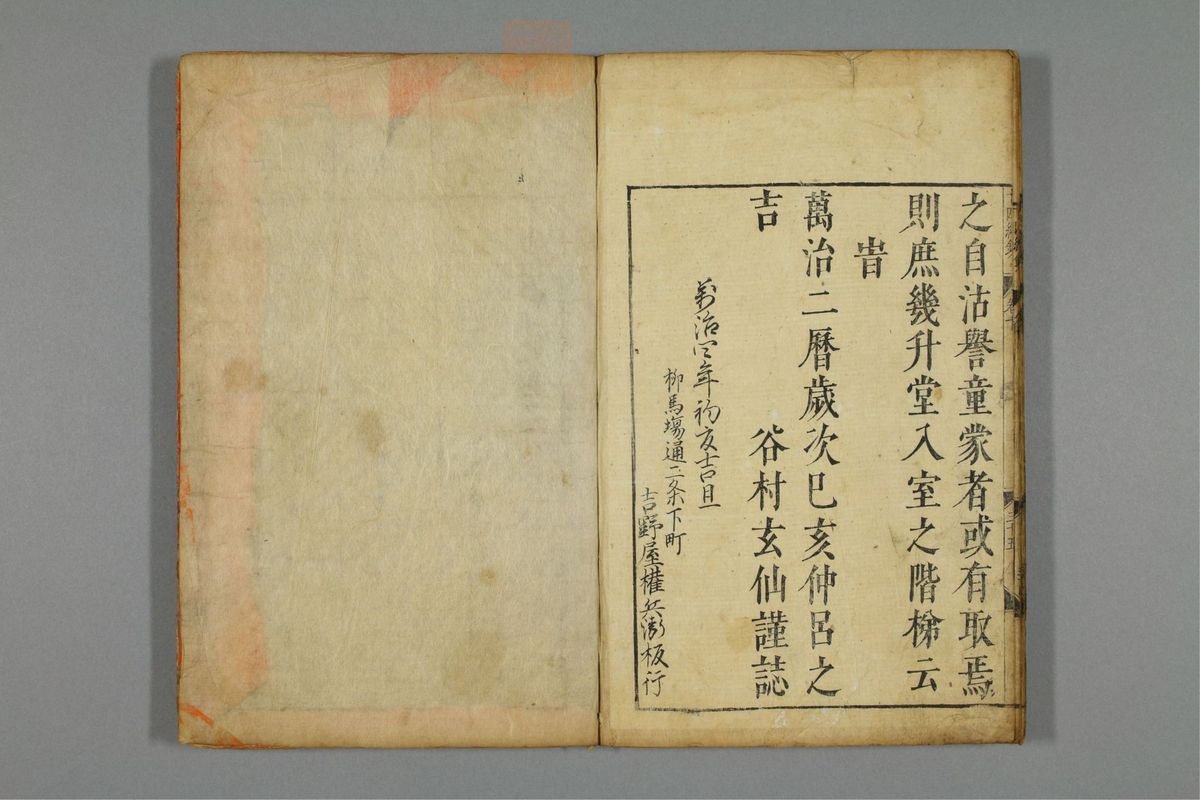 之自沽譽童蒙者或有取焉
則庶幾升堂入室之階梯云
旹
萬治二曆歲次己亥仲呂之
吉　谷村玄仙謹誌
萬治四年初夏吉旦
柳馬塲通二条下町
吉野屋權兵衛板行